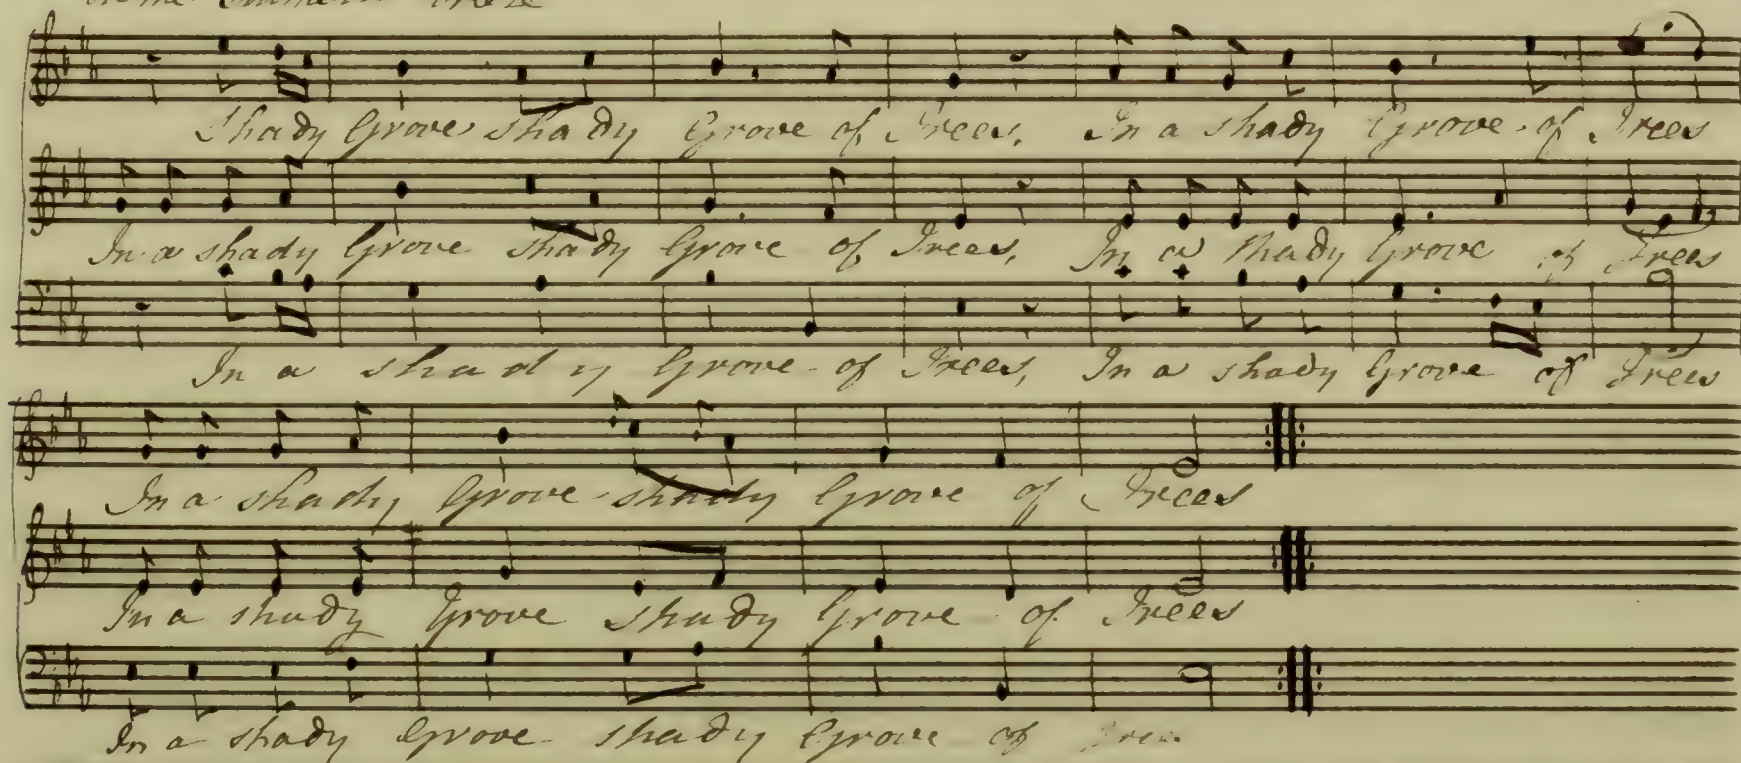 Shady Grove shady Grove of Trees, In a shady Grove of Trees
In a shady Grove shady Grove of Trees, In a shady Grove of Trees
In a shady Grove of Trees, In a shady Grove of Trees
In a shady Grove shady Grove of Trees
In a shady Grove shady Grove of Trees
In a shady Grove shady Grove of